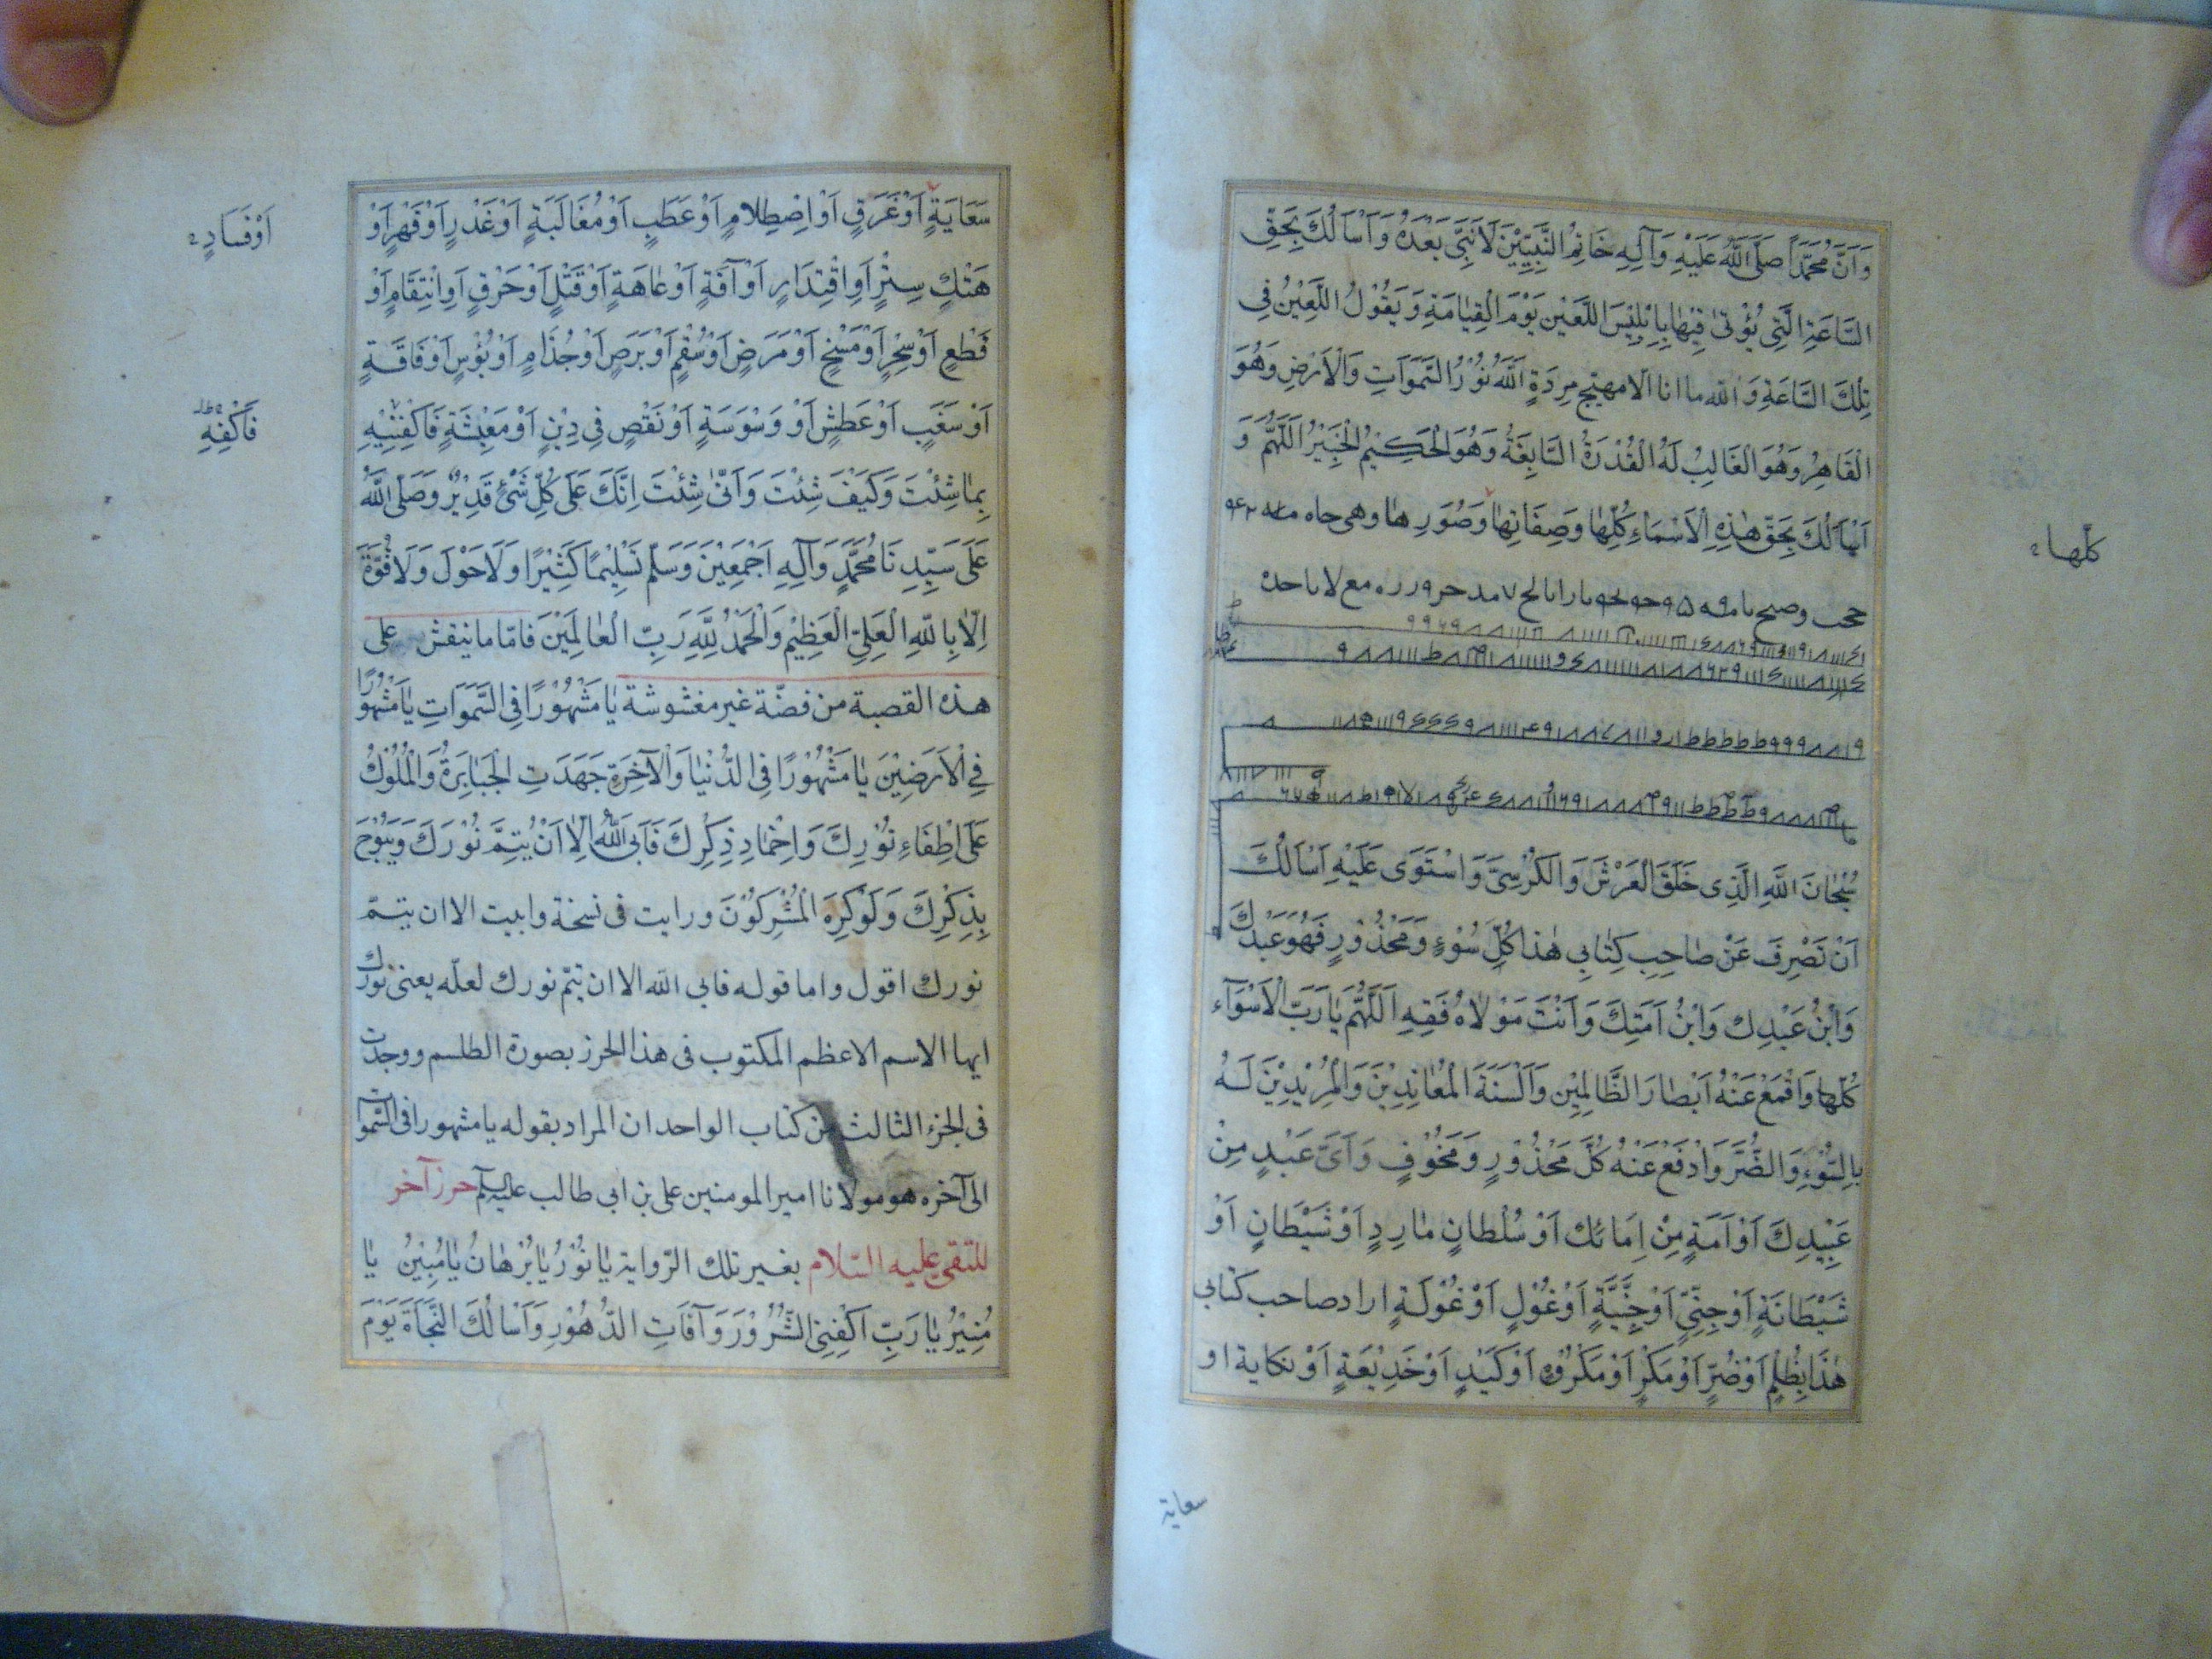 وَاَنَّ مُحَمَّدًا صَلَّى اللَّهُ عَلَيْهِ وَآلِهِ خَاتِمُ النَّبِيِّيْنَ لَا نَبِيَّ بَعْدَهُ وَاَسْاَلُكَ بِحَقِّ
السَّاعَةِ الَّتِي يُؤْتىٰ فِيْهَا بِاِبْلِيْسَ اللَّعِيْنِ يَوْمَ الْقِيَامَةِ وَيَقُوْلُ اللَّعِيْنُ فِي
تِلْكَ السَّاعَةِ وَاللّه ما انا الا مهيج مردة اَللَّهُ نُوْرُ السَّمَوَاتِ وَالْاَرْضِ وَهُوَ
الْقَاهِرُ وَهُوَ الْغَالِبُ لَهُ الْقُدْرَةُ السَّابِغَةُ وَهُوَ الْحَكِيْمُ الْخَبِيْرُ اَللَّهُمَّ وَ
اَسْاَلُكَ بِحَقِّ هٰذِهِ الْاَسْمَاءِ كُلِّهَا وَصِفَاتِهَا وَصُوَرِهَا وهى
كلّها
سُبْحَانَ اللَّهِ الَّذِى خَلَقَ الْعَرْشَ وَالْكُرْسِىَّ وَاسْتَوَى عَلَيْهِ اَسْاَلُكَ
اَنْ تَصْرِفَ عَنْ صَاحِبِ كِتَابِي هٰذا كُلَّ سُوْءٍ وَمَحْذُوْرٍ فَهُوَ عَبْدُكَ
وَابْنُ عَبْدِكَ وَابْنُ اَمَتِكَ وَاَنْتَ مَوْلَاهُ فَقِهِ اَللَّهُمَّ يَا رَبِّ الْاَسْوَآءَ
كُلَّهَا وَاقْمَعْ عَنْهُ اَبْصَارَ الظَّالِمِيْنَ وَاَلْسِنَةَ الْمُعَانِدِيْنَ وَالْمُرِيْدِيْنَ لَهُ
بِالسُّوْءِ وَالضُّرَّ وَادْفَعْ عَنْهُ كُلَّ مَحْذُوْرٍ وَمَخُوْفٍ وَاَىَّ عَبْدٍ مِنْ
عَبِيْدِكَ اَوْ اَمَةٍ مِنْ اِمَائِكَ اَوْ سُلْطَانٍ مَارِدٍ اَوْ شَيْطَانٍ اَوْ
شَيْطَانَةٍ اَوْ جِنِّيٍّ اَوْ جِنِّيَّةٍ اَوْ غُوْلٍ اَوْ غُوْلَةٍ اراد صاحب كتابى
هٰذَا بِظُلْمٍ اَوْ ضُرٍّ اَوْ مَكْرٍ اَوْ مَكْرُوْهٍ اَوْ كَيْدٍ اَوْ خَدِيْعَةٍ اَوْ نكاية او
سعاية
سَعَايَةٍ اَوْ غَرَقٍ اَوْ اِصْطِلَامٍ اَوْ عَطَبٍ اَوْ مُغَالَبَةٍ اَوْ غَدْرٍ اَوْ قَهْرٍ اَوْ
اَوْ فَسَادٍ
هَتْكِ سِتْرٍ اَوِ اقْتِدَارٍ اَوْ آفَةٍ اَوْ عَاهَةٍ اَوْ قَتْلٍ اَوْ حَرْقٍ اَوِ انْتِقَامٍ اَوْ
قَطْعٍ اَوْ سِحْرٍ اَوْ مَسْخٍ اَوْ مَرَضٍ اَوْ سُقْمٍ اَوْ بَرَصٍ اَوْ جُذَامٍ اَوْ بُؤْسٍ اَوْ فَاقَةٍ
اَوْ سَغَبٍ اَوْ عَطَشٍ اَوْ وَسْوَسَةٍ اَوْ نَقْصٍ فِي دِيْنٍ اَوْ مَعِيْشَةٍ فَاكْفِنِيْهِ
فَاكْفِهِ
بِمَا شِئْتَ وَكَيْفَ شِئْتَ وَاَنّىٰ شِئْتَ اِنَّكَ عَلَى كُلِّ شَىْءٍ قَدِيْرٌ وَصَلَّى اللَّهُ
عَلَى سَيِّدِنَا مُحَمَّدٍ وَآلِهِ اَجْمَعِيْنَ وَسَلَّمَ تَسْلِيْمًا كَثِيْرًا وَلَا حَوْلَ وَلَا قُوَّةَ
اِلَّا بِاللّهِ الْعَلِىِّ الْعَظِيْمِ وَالْحَمْدُ لِلَّهِ رَبِّ الْعَالَمِيْنَ فامّا ما ينقش على
هذه القصبة من فضّة غير مغشوشة يَا مَشْهُوْرًا فِى السَّمَوَاتِ يَا مَشْهُوْرًا
فِي الْاَرَضِيْنَ يَا مَشْهُوْرًا فِى الدُّنْيَا وَالْآخِرَةِ جَهَدَتِ الْجَبَابِرَةُ وَالْمُلُوْكُ
عَلَى اِطْفَاءِ نُوْرِكَ وَاِخْمَادِ ذِكْرِكَ فَاَبَى اللَّهُ اِلَّا اَنْ يُتِمَّ نُوْرَكَ وَيَبُوْحَ
بِذِكْرِكَ وَلَوْ كَرِهَ الْمُشْرِكُوْنَ ورايت فى نسخة وابيت الا ان يتمّ
نورك اقول واما قوله فابى الله الا ان يتمّ نورك لعلّه يعنى نورك
ايها الاسم الاعظم المكتوب فى هذا الحرز بصورة الطلسم ووجدت
فى الجزء الثالث من كتاب الواحد ان المراد بقوله يا مشهورا فى السّموات
الى آخره هو مولانا امير المومنين على بن ابى طالب عليه السلم حرز آخر
للتقى عليه السّلام بغير تلك الرّواية يَا نُوْرُ يَا بُرْهَانُ يَا مُبِيْنُ يَا
مُنِيْرُ يَا رَبِّ اكْفِنِى الشُّرُوْرَ وَآفَاتِ الدُّهُوْرِ وَاَسْاَلُكَ النَّجَاةَ يَوْمَ